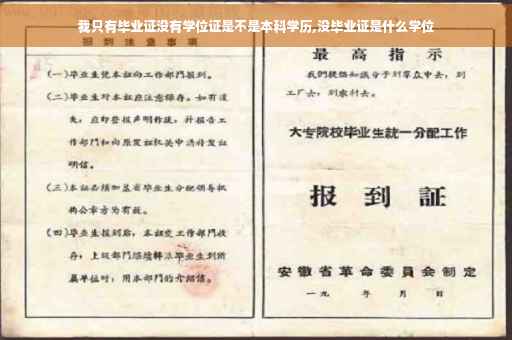 我只有毕业证没有学位证是不是本科学历,没毕业证是什么学位
报到注意事项
(一)毕业生凭本证向工作部门报到。
(二)毕业生对本证应注意保存。如有遗
失,应即登报声明作废,并报告工
作部门和向原发证机关申请补发证
明信。
(三)本证必须加盖省毕业生分配领导机
构公章方为有效。
(四)毕业生报到后,本证交工作部门收
存;上级部门派毕业生到所
属单位时,用本部门的介绍信。
最高指示
我们提倡知识分子到群众中去,到
工厂去,到农村去。
大专院校毕业生统一分配工作
报到证
安徽省革命委员会制定
一九 年 月 日